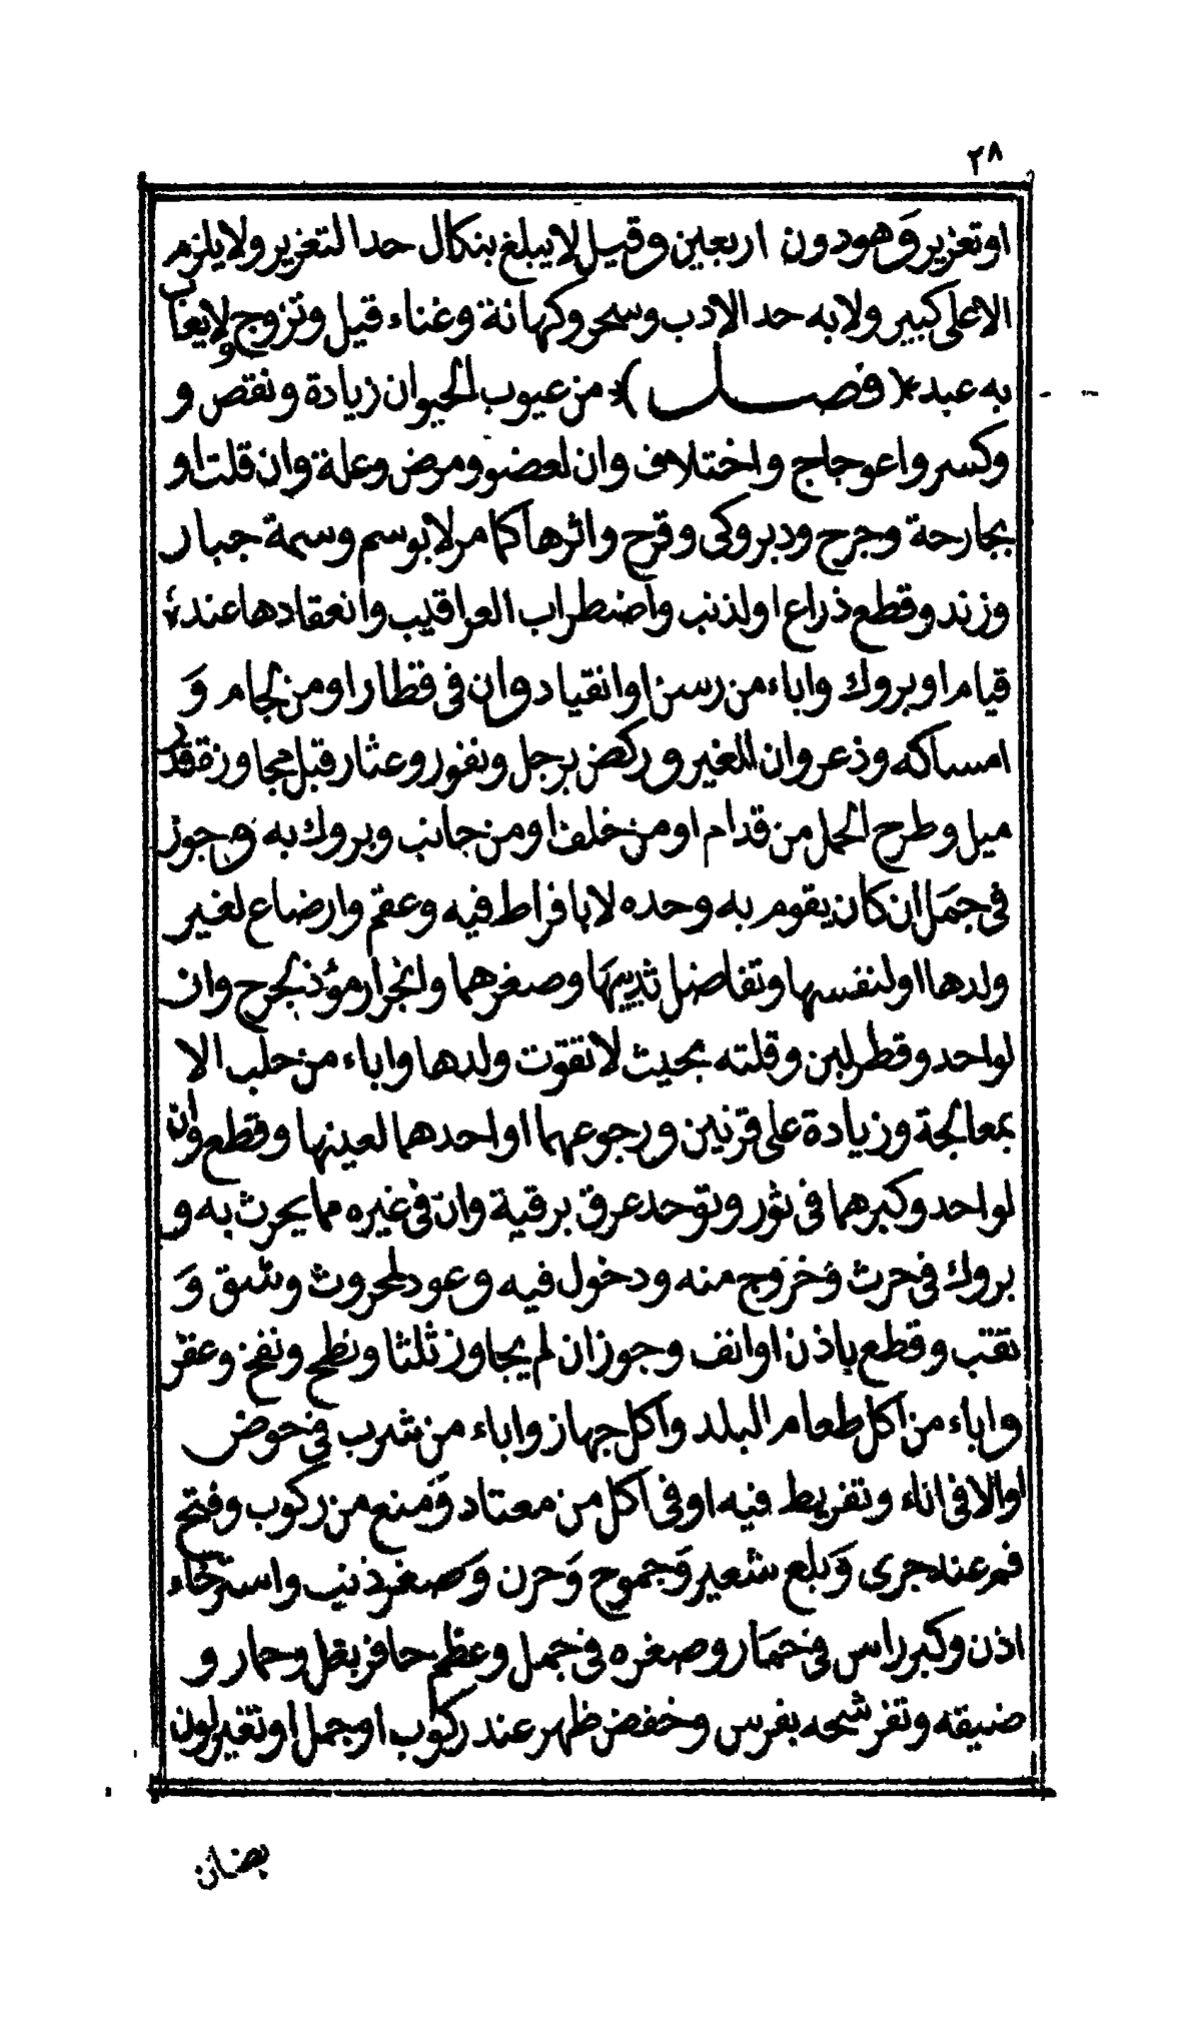 ٢٨
او تعزير وَهو دون اربعين وقيل لا يبلغ بنكال حد التعزير ولا يلزم
الا على كبير ولا به حد الادب وسحر وكهانة وغناء قيل وتزوج لا يعاب
به عبد *( فصل )* من عيوب الحيوان زيادة ونقص و
وكسر واعوجاج واختلاف وان لعضو ومرض وعلة وان قلت او
بجارحة وجرح ودبر وكى وقرح واثرها كما مر لا بوسم وسمة جبار
وزند وقطع ذراع او لذنب واضطراب العراقيب وانعقادها عند
قيام او بروك واباء من رسن او انقياد وان فى قطار او من لجام وَ
امساكه وذعر وان للغير وركض برجل ونفور وعثار قبل مجاوزة قدر
ميل وطرح الحمل من قدام او من خلف او من جانب وبروك به وجوز
فى جمَل ان كان يقوم به وحده لا بافراط فيه وعقم وارضاع لغير
ولدها او لنفسها وتفاضل ثدييهَا وصغرهما وانجرار مؤذ لجرح وان
لواحد وقطر لبن وقلته بحيث لا تقوّت ولدها واباء من حلب الا
بمعالجة وزيادة على قرنين ورجوعهما او احدهما لعينها وقطع وان
لواحد وكبرهما فى ثور وتوحد عرق برقبة وان فى غيره مما يحرث به و
بروك فى حرث وَخروج منه ودخول فيه وعود لمحروث وشق وَ
نقب وقطع باذن او انف وجوز ان لم يجاوز ثلثا ونطح ونفخ وعقر
واباء من اكل طعام البلد واكل جهاز واباء من شرب فى حوض
او الا فى اناء وتفريط فيه او فى اكل من معتاد وَمنع من ركوب وفتح
فم عند جرى وَبلع شعير وَجموح وَحرن وَصغر ذنب واسترخاء
اذن وكبر راس فى حمَار وصغره فى جمل وعظم حافر بغل وحمار و
ضيقه وتفرشحه بفرس وخفض ظهر عند ركوب او جمل او تغير لون
بضان